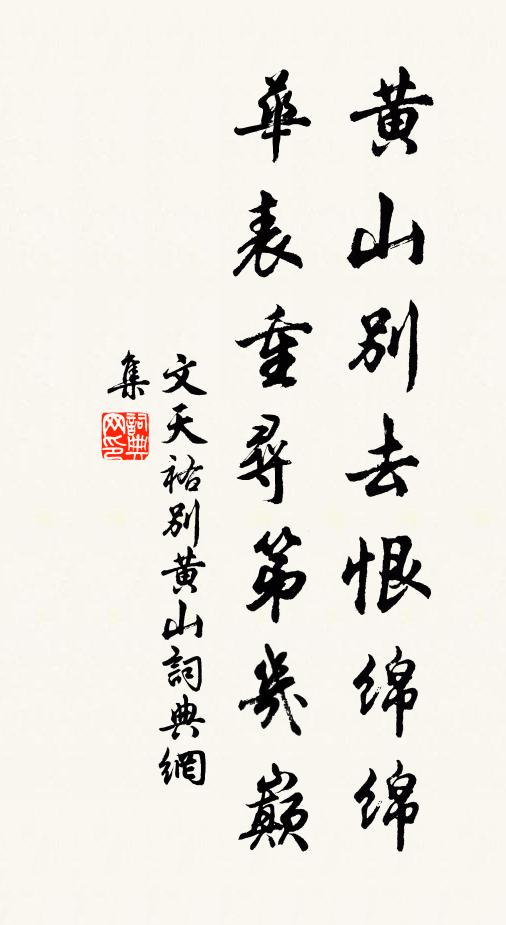 黄山別去恨綿綿
華表重尋第幾巔
文天祐別黄山詞典網
集
詞典網印